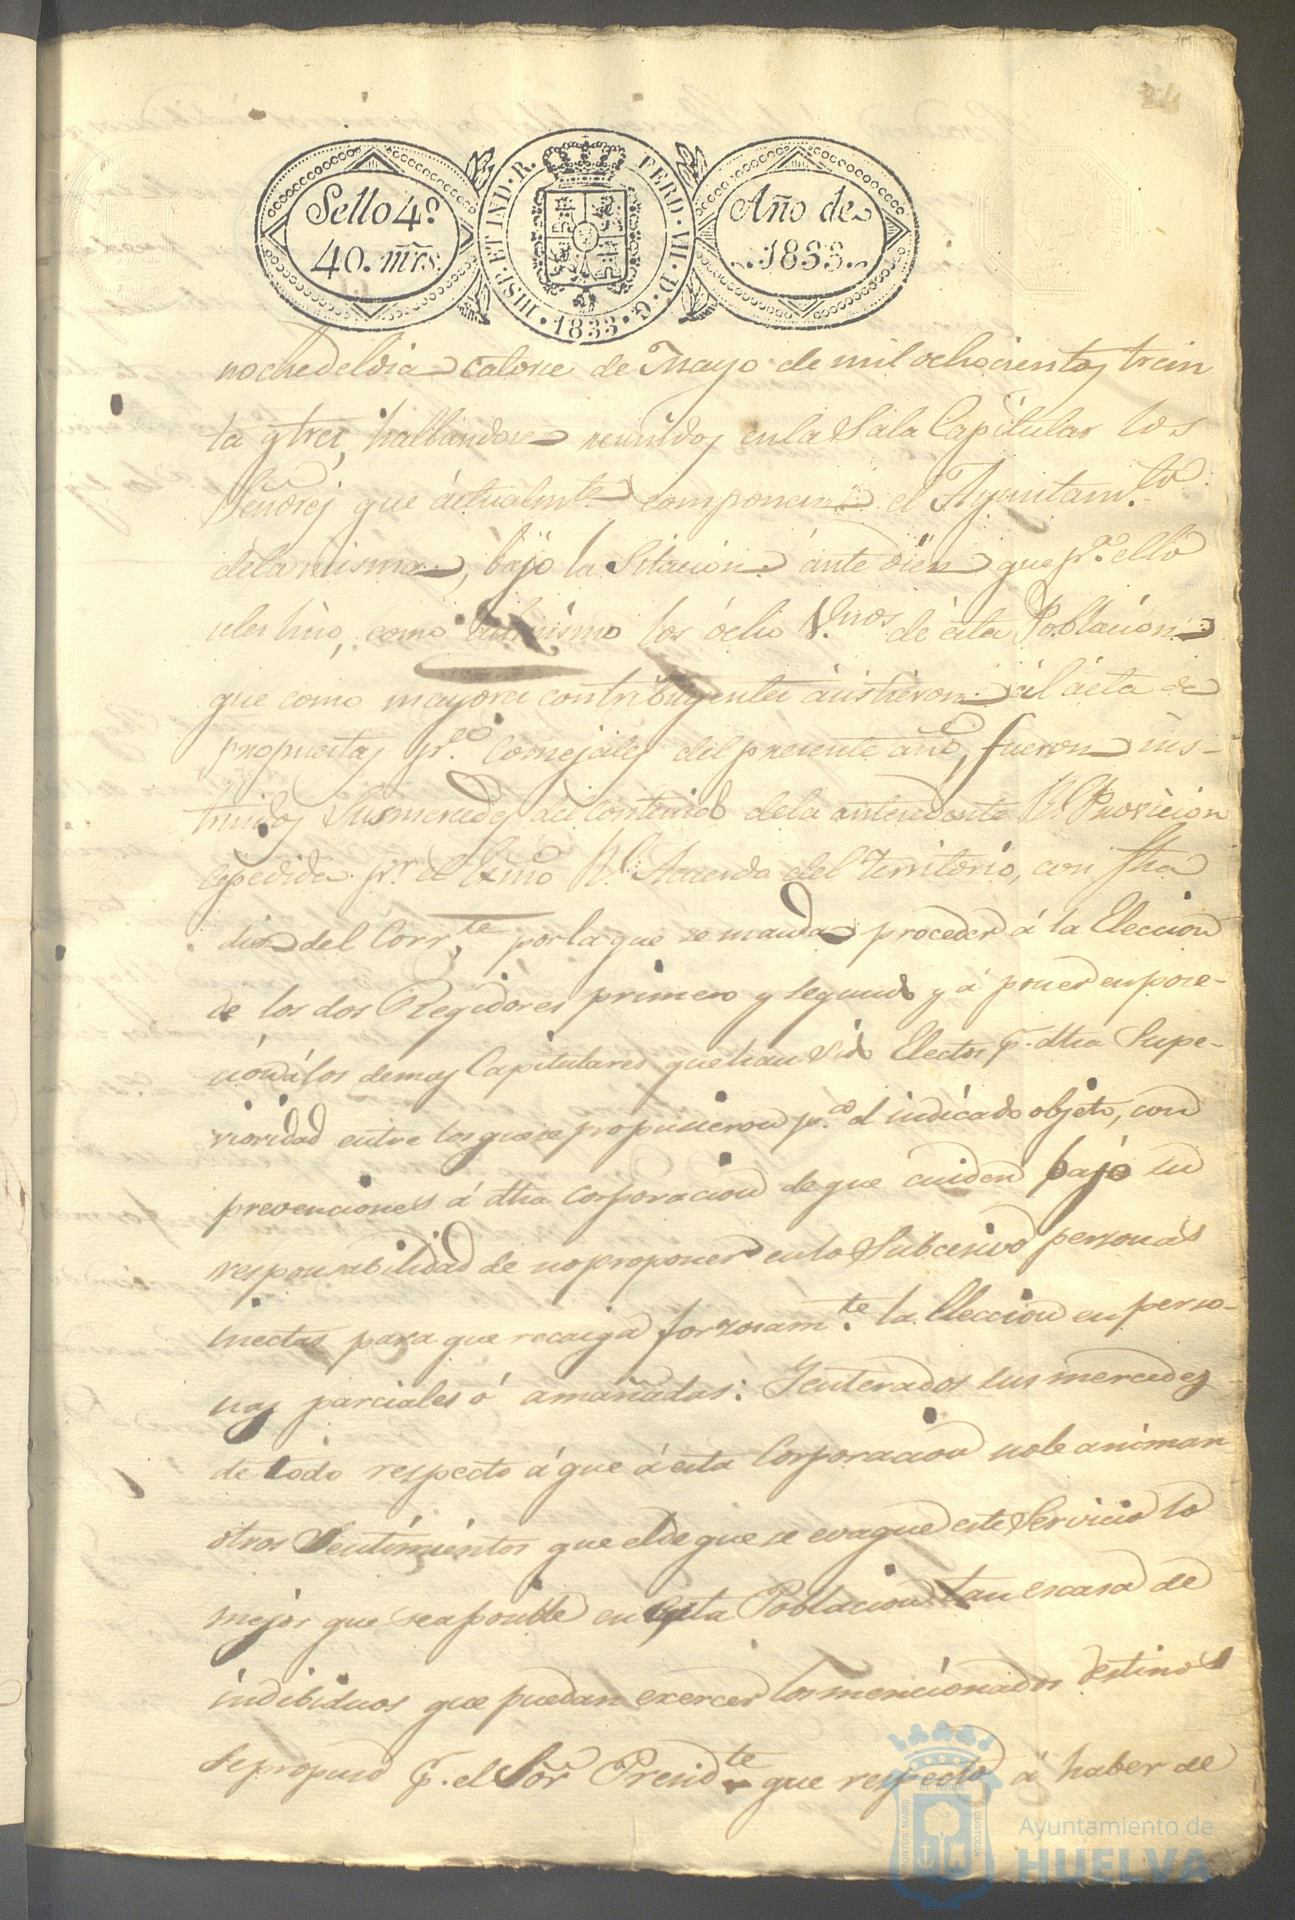 24
Sello 4º
40. mrs.
HISP. ET IND. R. FERD. VII. D. G. 1833.
Año de
1833.
noche del dia catorce de Mayo de mil ochocientos trein
ta y tres, hallandose reunidos en la Sala Capitular los
Señores que actualmte componen el Ayuntam.to
dela misma, bajo la Sitacion ante diem que pª ello
seles hizo, como asimismo los ócho V.nos de ésta Poblacion
que como mayores contribuyentes asistieron al acta de
propuestas pª Consejales del presente año, fueron ins-
truidos Susmercedes del Contenido dela antecedente Rl Provicion
espedida pr. el Exmo Rl Acuerdo del Territorio, con fha
diez del Corr.te por la que se manda proceder á la Eleccion
de los dos Regidores primero y Segundo y á poner en pose-
sión á los demas Capitulares que han sido Electos p. dha Supe-
rioridad entre los que se propusieron pª el indicado objeto, con
prevenciones á dha corporacion de que cuiden bajo su
responsabilidad de no proponer en lo Subcesivo personas
inectas para que recaiga forzosam.te la Eleccion en perso-
nas parciales ó amañadas: Y enterados sus mercedes
de todo respecto á que á esta Corporacion no le animan
otros Sentimientos que el de que se evague este Servicio lo
mejor que sea posible en esta Poblacion tan escasa de
indibiduos que puedan exercer los mencionados destinos
Se propuso p. el Sor Presid.te que respecto á haber de
PORTUS MARIS ET TERRAE CUSTODIA
Ayuntamiento de
HUELVA